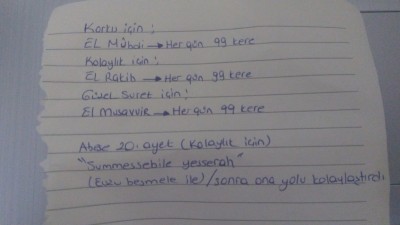 Korku için ;
EL Mühdi → Her gün 99 kere
Kolaylık için ;
EL Ratih → Her gün 99 kere
Güzel Suret için ;
El Musavvir → Her gün 99 kere
Abese 20. ayet (Kolaylık için)
"Summessebile yesserah"
(Euzu besmele ile) / sonra ona yolu kolaylaştırdı